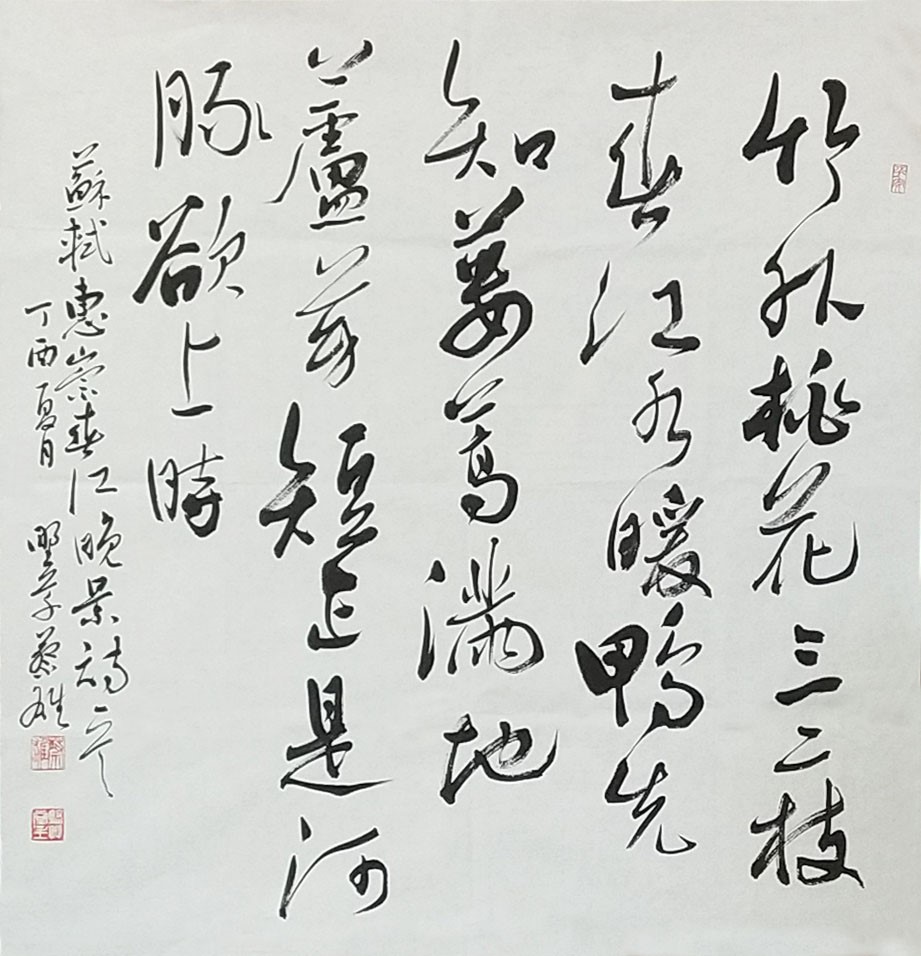 竹外桃花三二枝
春江水暖鴨先
知蔞蒿滿地
蘆芽短正是河
豚欲上時
蘇軾惠崇春江晚景詩一首
丁酉夏月